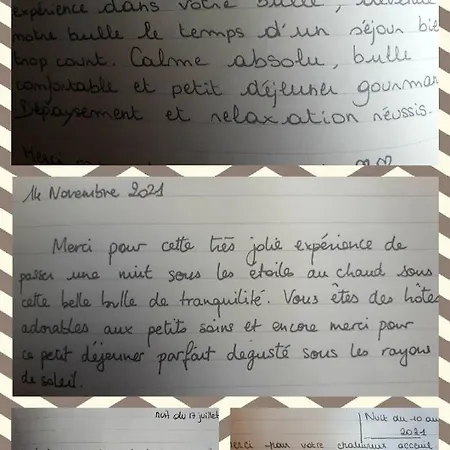 expérience dans votre bulle,
notre bulle le temps d'un séjour bie
trop court. Calme absolu, bulle
confortable et petit déjeuner gourman
Dépaysement et relaxation réussis.
14 Novembre 2021
Merci pour cette très jolie expérience de
passer une nuit sous les étoiles au chaud sous
cette belle bulle de tranquilité. Vous êtes des hôtes
adorables aux petits soins et encore merci pour
ce petit déjeuner parfait dégusté sous les rayons
de soleil.
nuit du 17 juillet
Nuit du 10 au
2021
erci pour votre chaleureux acceuil